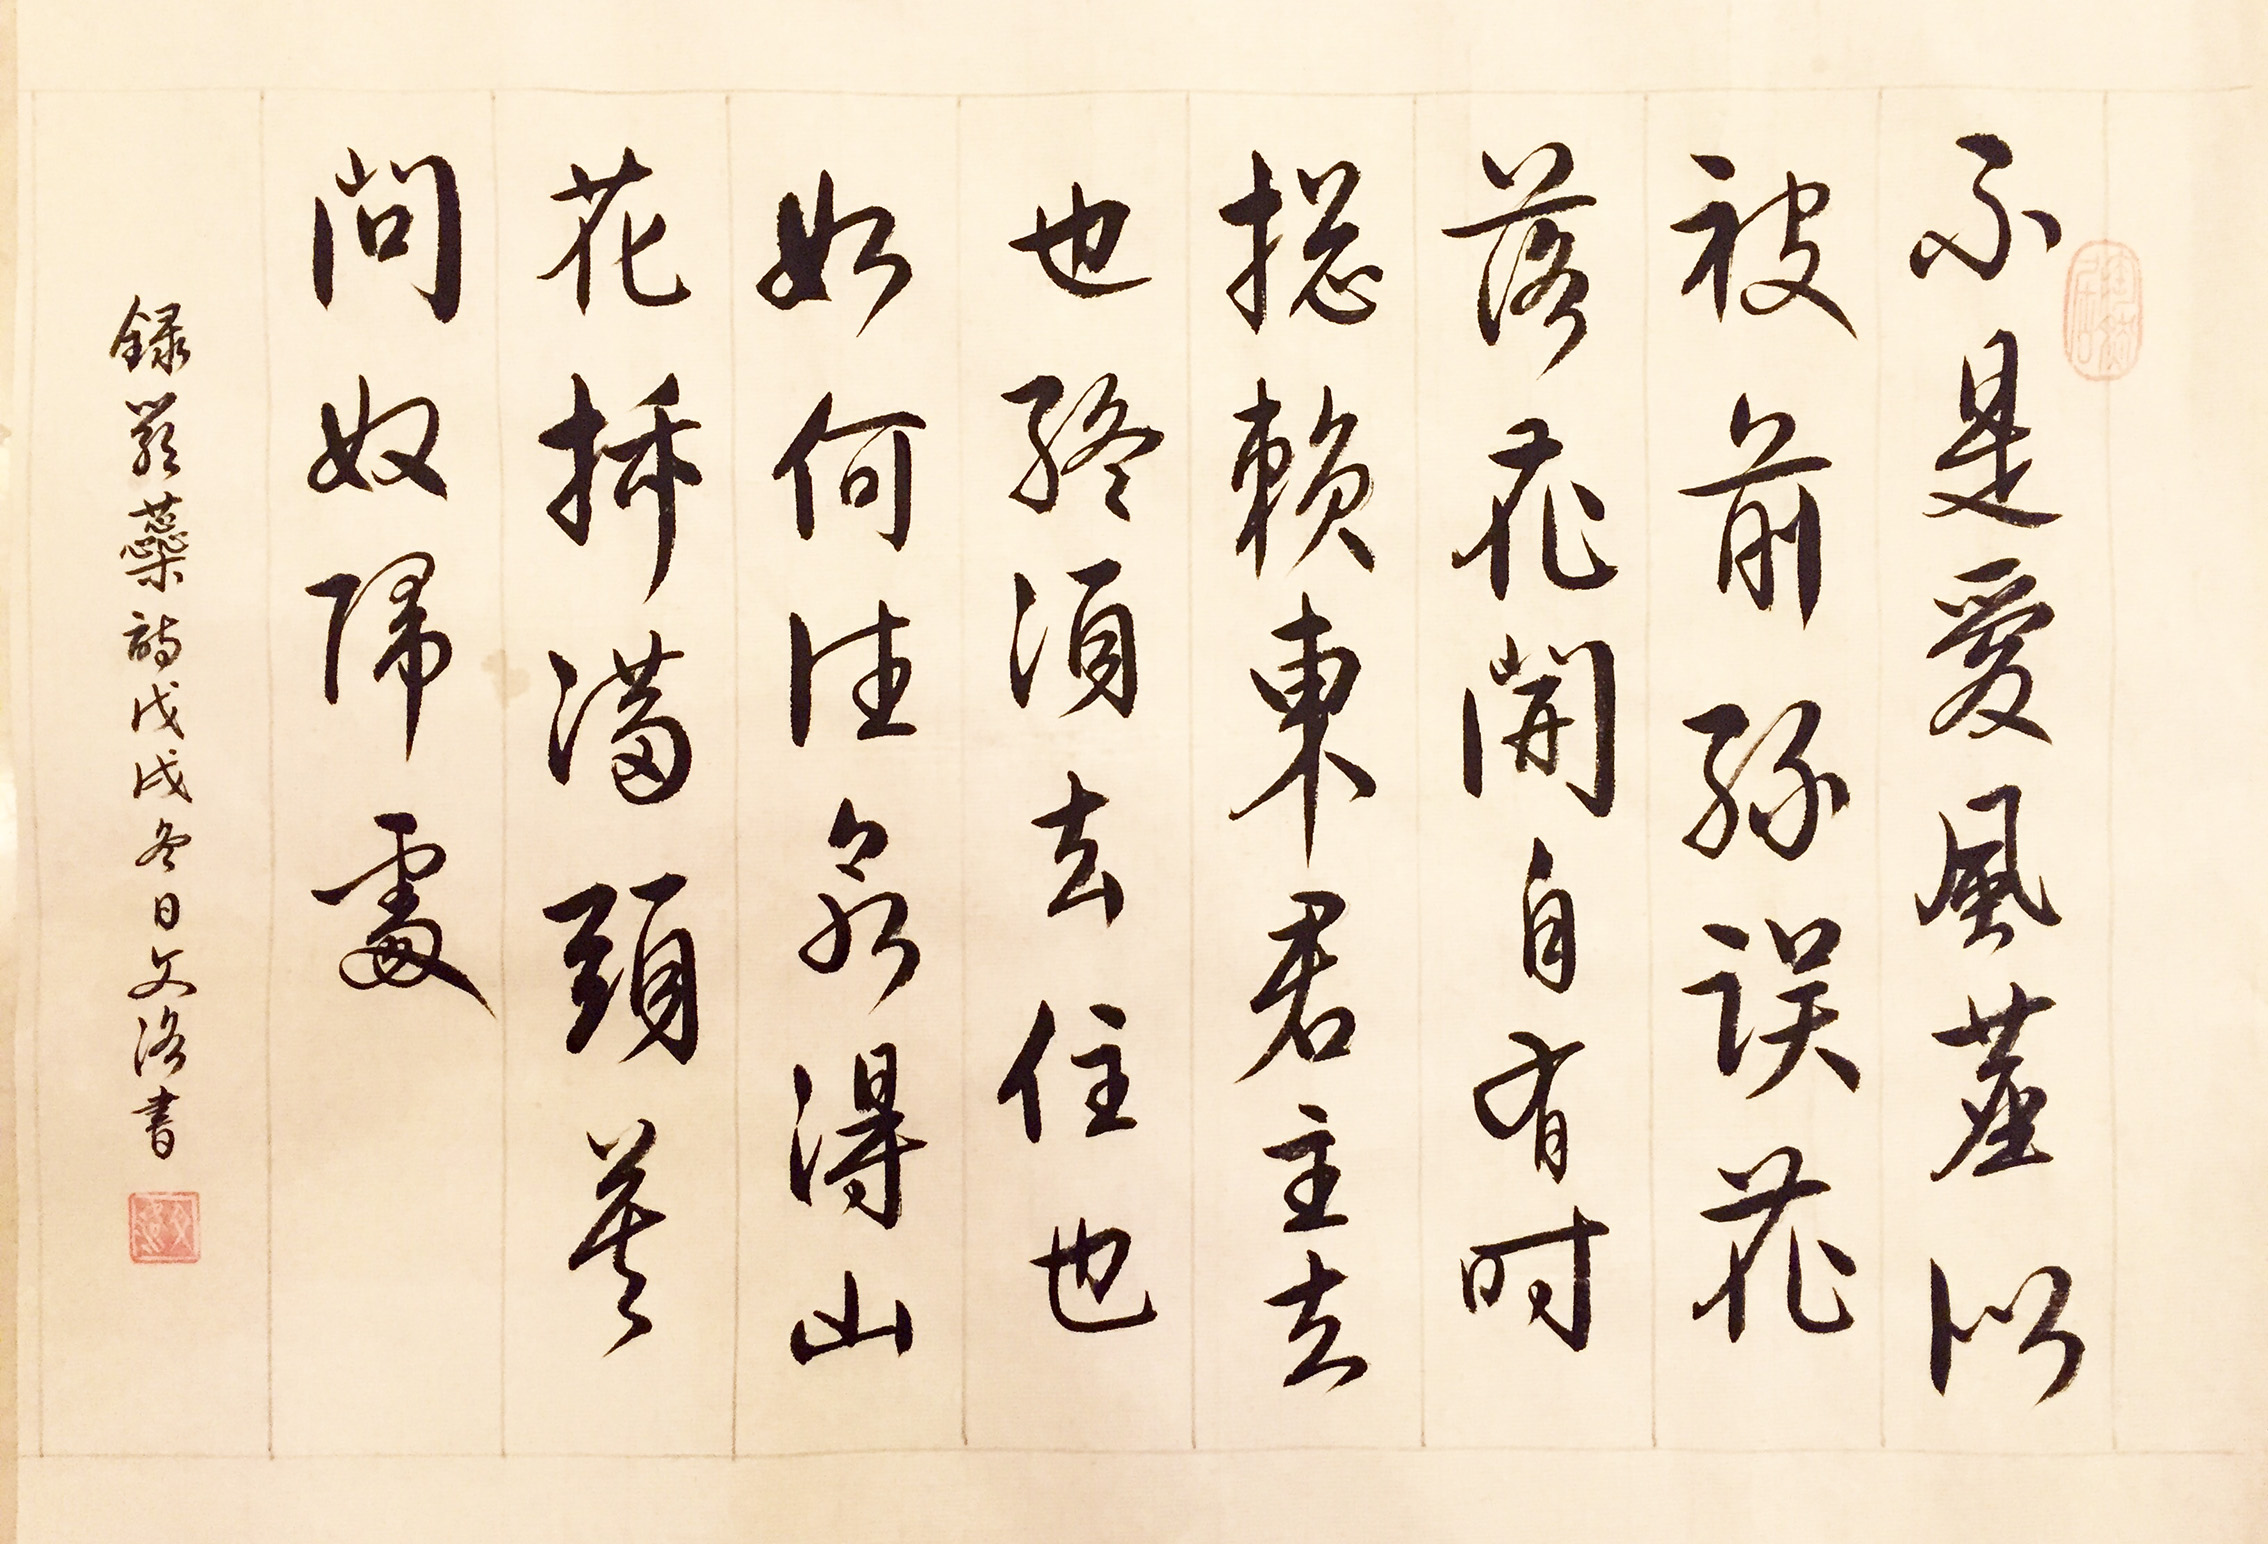 不是愛風塵似
被前緣誤花
落花開自有時
揔賴東君主去
也終須去住也
如何住得山
花插滿頭莫
問奴歸處
錄嚴蘂詩戊戌冬日文洛書